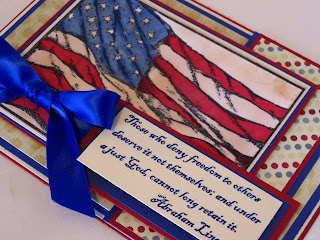 Those who deny freedom to others
deserve it not themselves; and under
a just God, cannot long retain it.
Abraham Linc